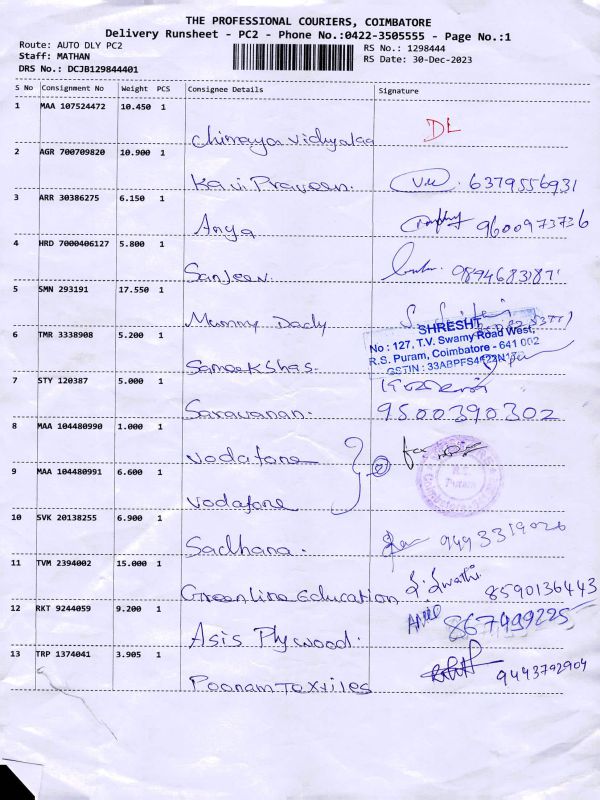 THE PROFESSIONAL COURIERS, COIMBATORE
Delivery Runsheet - PC2 - Phone No.:0422-3505555 - Page No.:1
Route: AUTO DLY PC2 RS No.: 1298444
Staff: MATHAN RS Date: 30-Dec-2023
DRS No.: DCJB129844401
S No Consignment No Weight PCS Consignee Details Signature
1 MAA 107524472 10.450 1 Chinmaya vidhyalaa DL
2 AGR 700709820 10.900 1 Kavi Praveen. 6379556931
3 ARR 30386275 6.150 1 Anya 9600973736
4 HRD 7000406127 5.800 1 Sanjeev.
5 SMN 293191 17.550 1 Mummy Dady
SHRESHT
No : 127, T.V. Swamy Road West,
R.S. Puram, Coimbatore - 641 002
GSTIN :
6 TMR 3338908 5.200 1 Sameekshas.
7 STY 120387 5.000 1 Saravanan. 9500390302
8 MAA 104480990 1.000 1 Vodafone
9 MAA 104480991 6.600 1 Vodafone
Puram
10 SVK 20138255 6.900 1 Sadhana.
11 TVM 2394002 15.000 1 Greenline Education S. Swathi 8590136443
12 RKT 9244059 9.200 1 Asis Plywood. 867499225
13 TRP 1374041 3.905 1 Poonam Textiles 9443792909